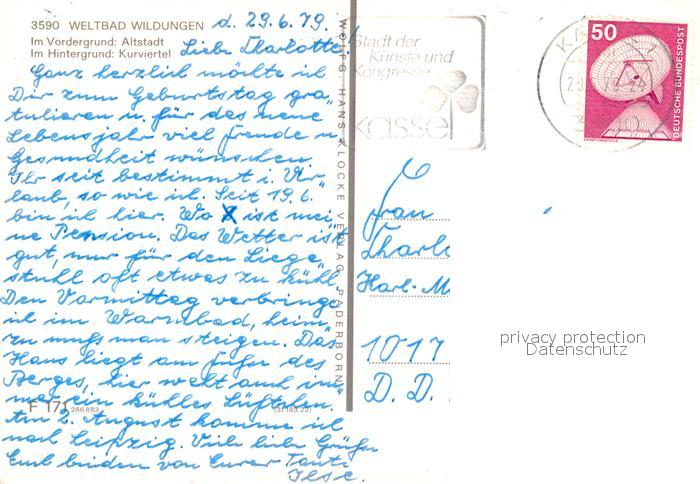 3590 WELTBAD WILDUNGEN d. 29.6.79.
Im Vordergrund: Altstadt
Im Hintergrund: Kurviertel
Liebe Charlotte!
Ganz herzlich möchte ich
Dir zum Geburtstag gra-
tulieren u. für das neue
Lebensjahr viel Freude u.
Gesundheit wünschen.
Ihr seit bestimmt i. Ur-
laub, so wie ich. Seit 19.6.
bin ich hier. Wo X ist mei-
ne Pension. Das Wetter ist
gut, nur für den Liege-
stuhl oft etwas zu kühl.
Den Vormittag verbringe
ich im Warmbad, heim-
zu muß man steigen. Das
Haus liegt am Fuße des
Berges, hier weht auch im-
mer ein kühles Lüftchen.
Am 2. August komme ich
nach Leipzig. Viele liebe Grüße
Euch beiden von Eurer Tante
Ilse.
F 171 266883 (31 183 22)
WOLFG. HANS KLOCKE VERLAG, PADERBORN
Stadt der
Künste und
Kongresse
kassel
50
DEUTSCHE BUNDESPOST
ERDFUNKSTELLE
Frau
Charlo
Karl-M
1017
D.D.
privacy protection
Datenschutz